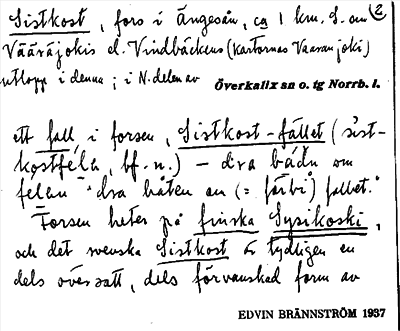 Sistkost, fors i Ängesån, ca 1 km. S. om ②
Vääräjokis el. Vindbäckens (kartornas Vaaranjoki)
utlopp i denna; i N. delen av Överkalix sn o. tg Norrb. l.
ett fall i forsen, Sistkost-fallet (sist-
bf. n.) – dra om
"dra båten om (= förbi) fallet."
Forsen heter på finska Sysikoski,
och det svenska Sistkost är tydligen en
dels översatt, dels förvanskad form av
EDVIN BRÄNNSTRÖM 1937